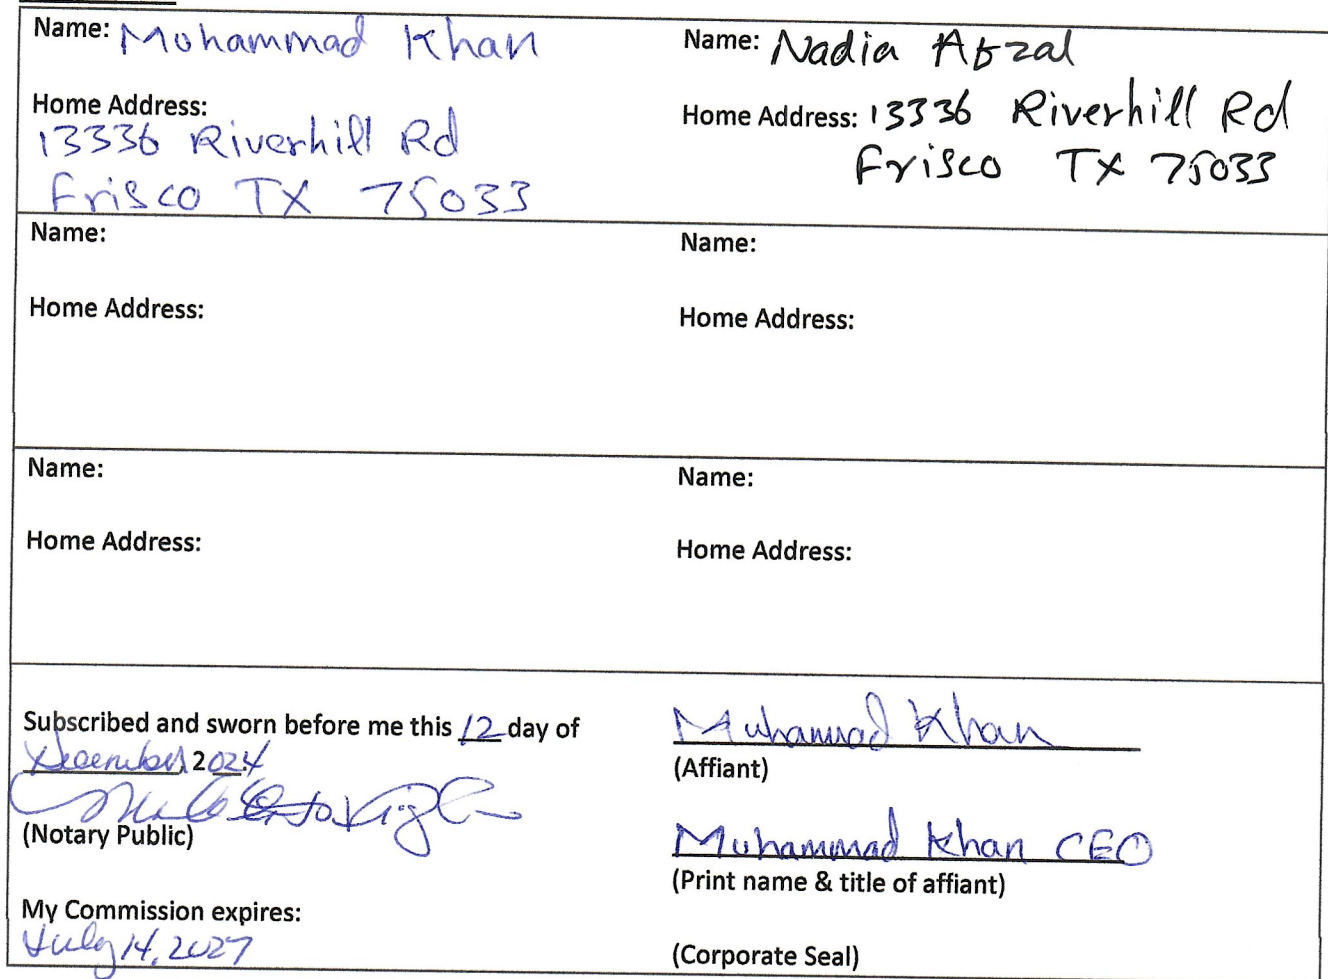 Name: Mohammad Khan
Home Address:
13336 Riverhill Rd
Frisco TX 75033
Name: Nadia Afzal
Home Address: 13336 Riverhill Rd
Frisco TX 75033
Name:
Home Address:
Name:
Home Address:
Name:
Home Address:
Name:
Home Address:
Subscribed and sworn before me this 12 day of
December 2024
(Notary Public)
My Commission expires:
July 14, 2027
Muhammad Khan
(Affiant)
Muhammad Khan CEO
(Print name & title of affiant)
(Corporate Seal)